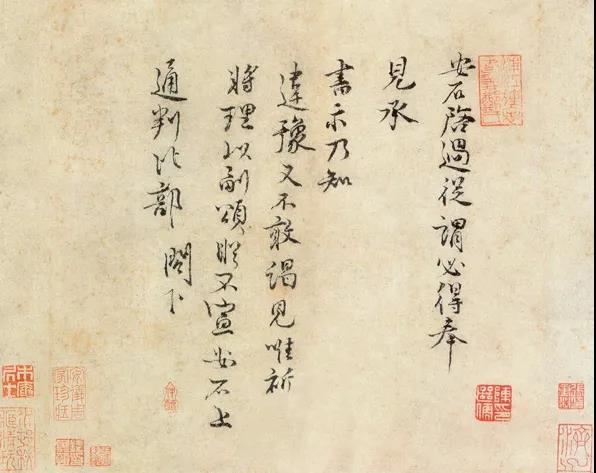 安石启過從謂必得奉
見承
書示乃知
違豫又不敢謁見唯祈
將理以副頌䀶不宣安石上
通判比部 閤下